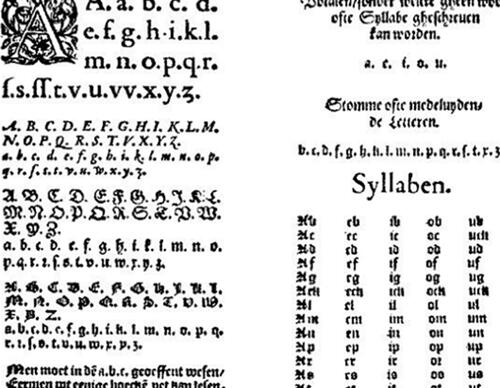 A. a. b. c. d.
e. f. g. h. i. k. l.
m. n. o. p. q. r.
ſ. s. ſſ. t. v. u. vv. x. y. z.
A. B. C. D. E. F. G. H. I. K. L. M.
N. O. P. Q. R. S. T. V. X. Y. Z.
a. b. c. d. e. f. g. h. i. k. l. m. n. o. p.
q. r. ſ. s. t. v. u. w. x. y. z.
A. B. C. D. E. F. G. H. I. K. L.
M. N. O. P. Q. R. S. T. V. W.
X. Y. Z.
a. b. c. d. e. f. g. h. i. k. l. m. n. o.
p. q. r. ſ. s. t. v. u. w. x. y. z.
A. B. C. D. E. F. G. H. I. K. L.
M. N. O. P. Q. R. S. T. V. W.
X. Y. Z.
a. b. c. d. e. f. g. h. i. k. l. m. n. o. p. q.
r. ſ. s. t. v. u. w. x. y. z.
Men moet in dē a.b.c. geoeffent weſen/
ofte Syllabe gheſchreven
kan worden.
a. e. i. o. u.
Stomme ofte medeluyden-
de Letteren.
b. c. d. f. g. h. k. l. m. n. p. q. r. ſ. t. x. z
Syllaben.
Ab eb ib ob ub
Ac ec ic oc uck
Ad ed id od ud
Af ef if of uf
Ag eg ig og ug
Ack eck ick ock uck
Al el il ol ul
Am em im om um
An en in on un
Ap ep ip op up
Ar er ir or ur
As es is os us